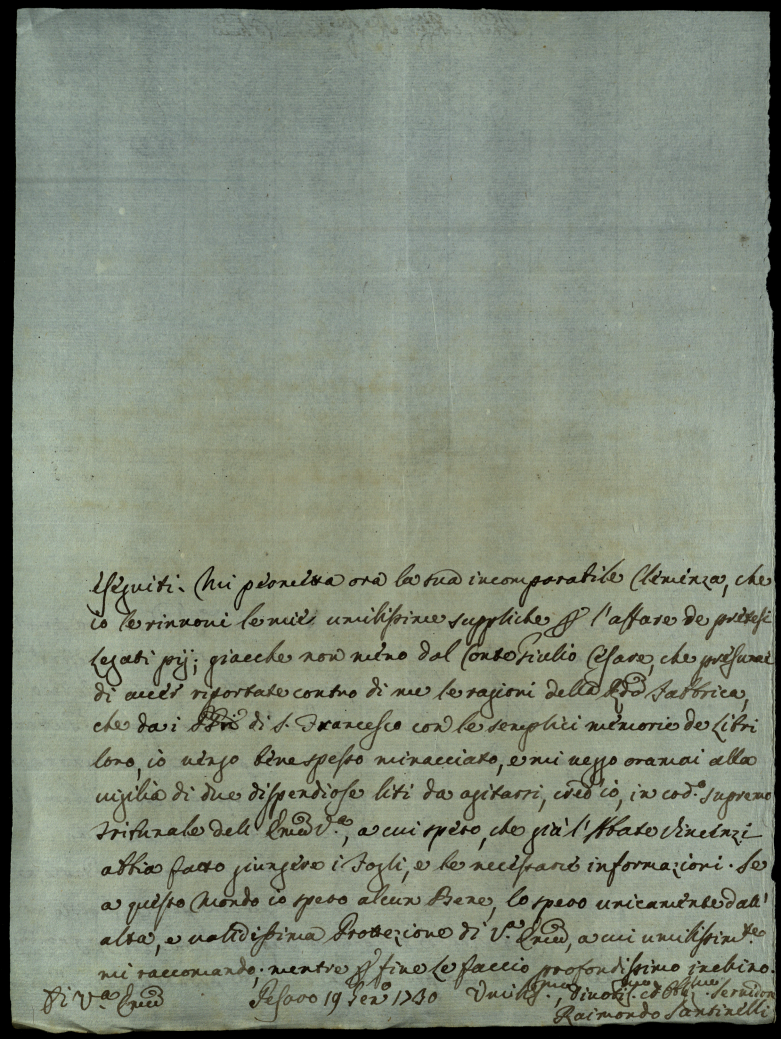 eseguiti. Mi permetta ora la sua incomparabile Clemenza, che
io le rinnovi le mie umilissime suppliche p l'affare de pretesi
Legati pij; giacche non meno dal Conte Giulio Cesare, che presume
di aver riportate contro di me le ragioni della Rda Fabbrica,
che da i PPri di S. Francesco con le semplici memorie de Libri
loro, io vengo bene spesso minacciato, e mi veggo oramai alla
vigilia di due dispendiose liti da agitarsi, cred'io, in cod.o supremo
Tribunale dell' Emza V.a, a cui spero, che già l'Abbate Vincenzi
abbia fatto giungere i Fogli, e le necessarie informazioni. Se
a questo Mondo io spero alcun Bene, lo spero unicamente dall'
alta, e validissima Protezione di V.a Emza, a cui umilissim.te
mi raccomando; mentre p fine Le faccio profondissimo inchino.
Di V.a Emza Pesaro 19 Gen.o 1730 Umiliss.mo, divotiss.mo ed obb.mo Servidore
Raimondo Santinelli